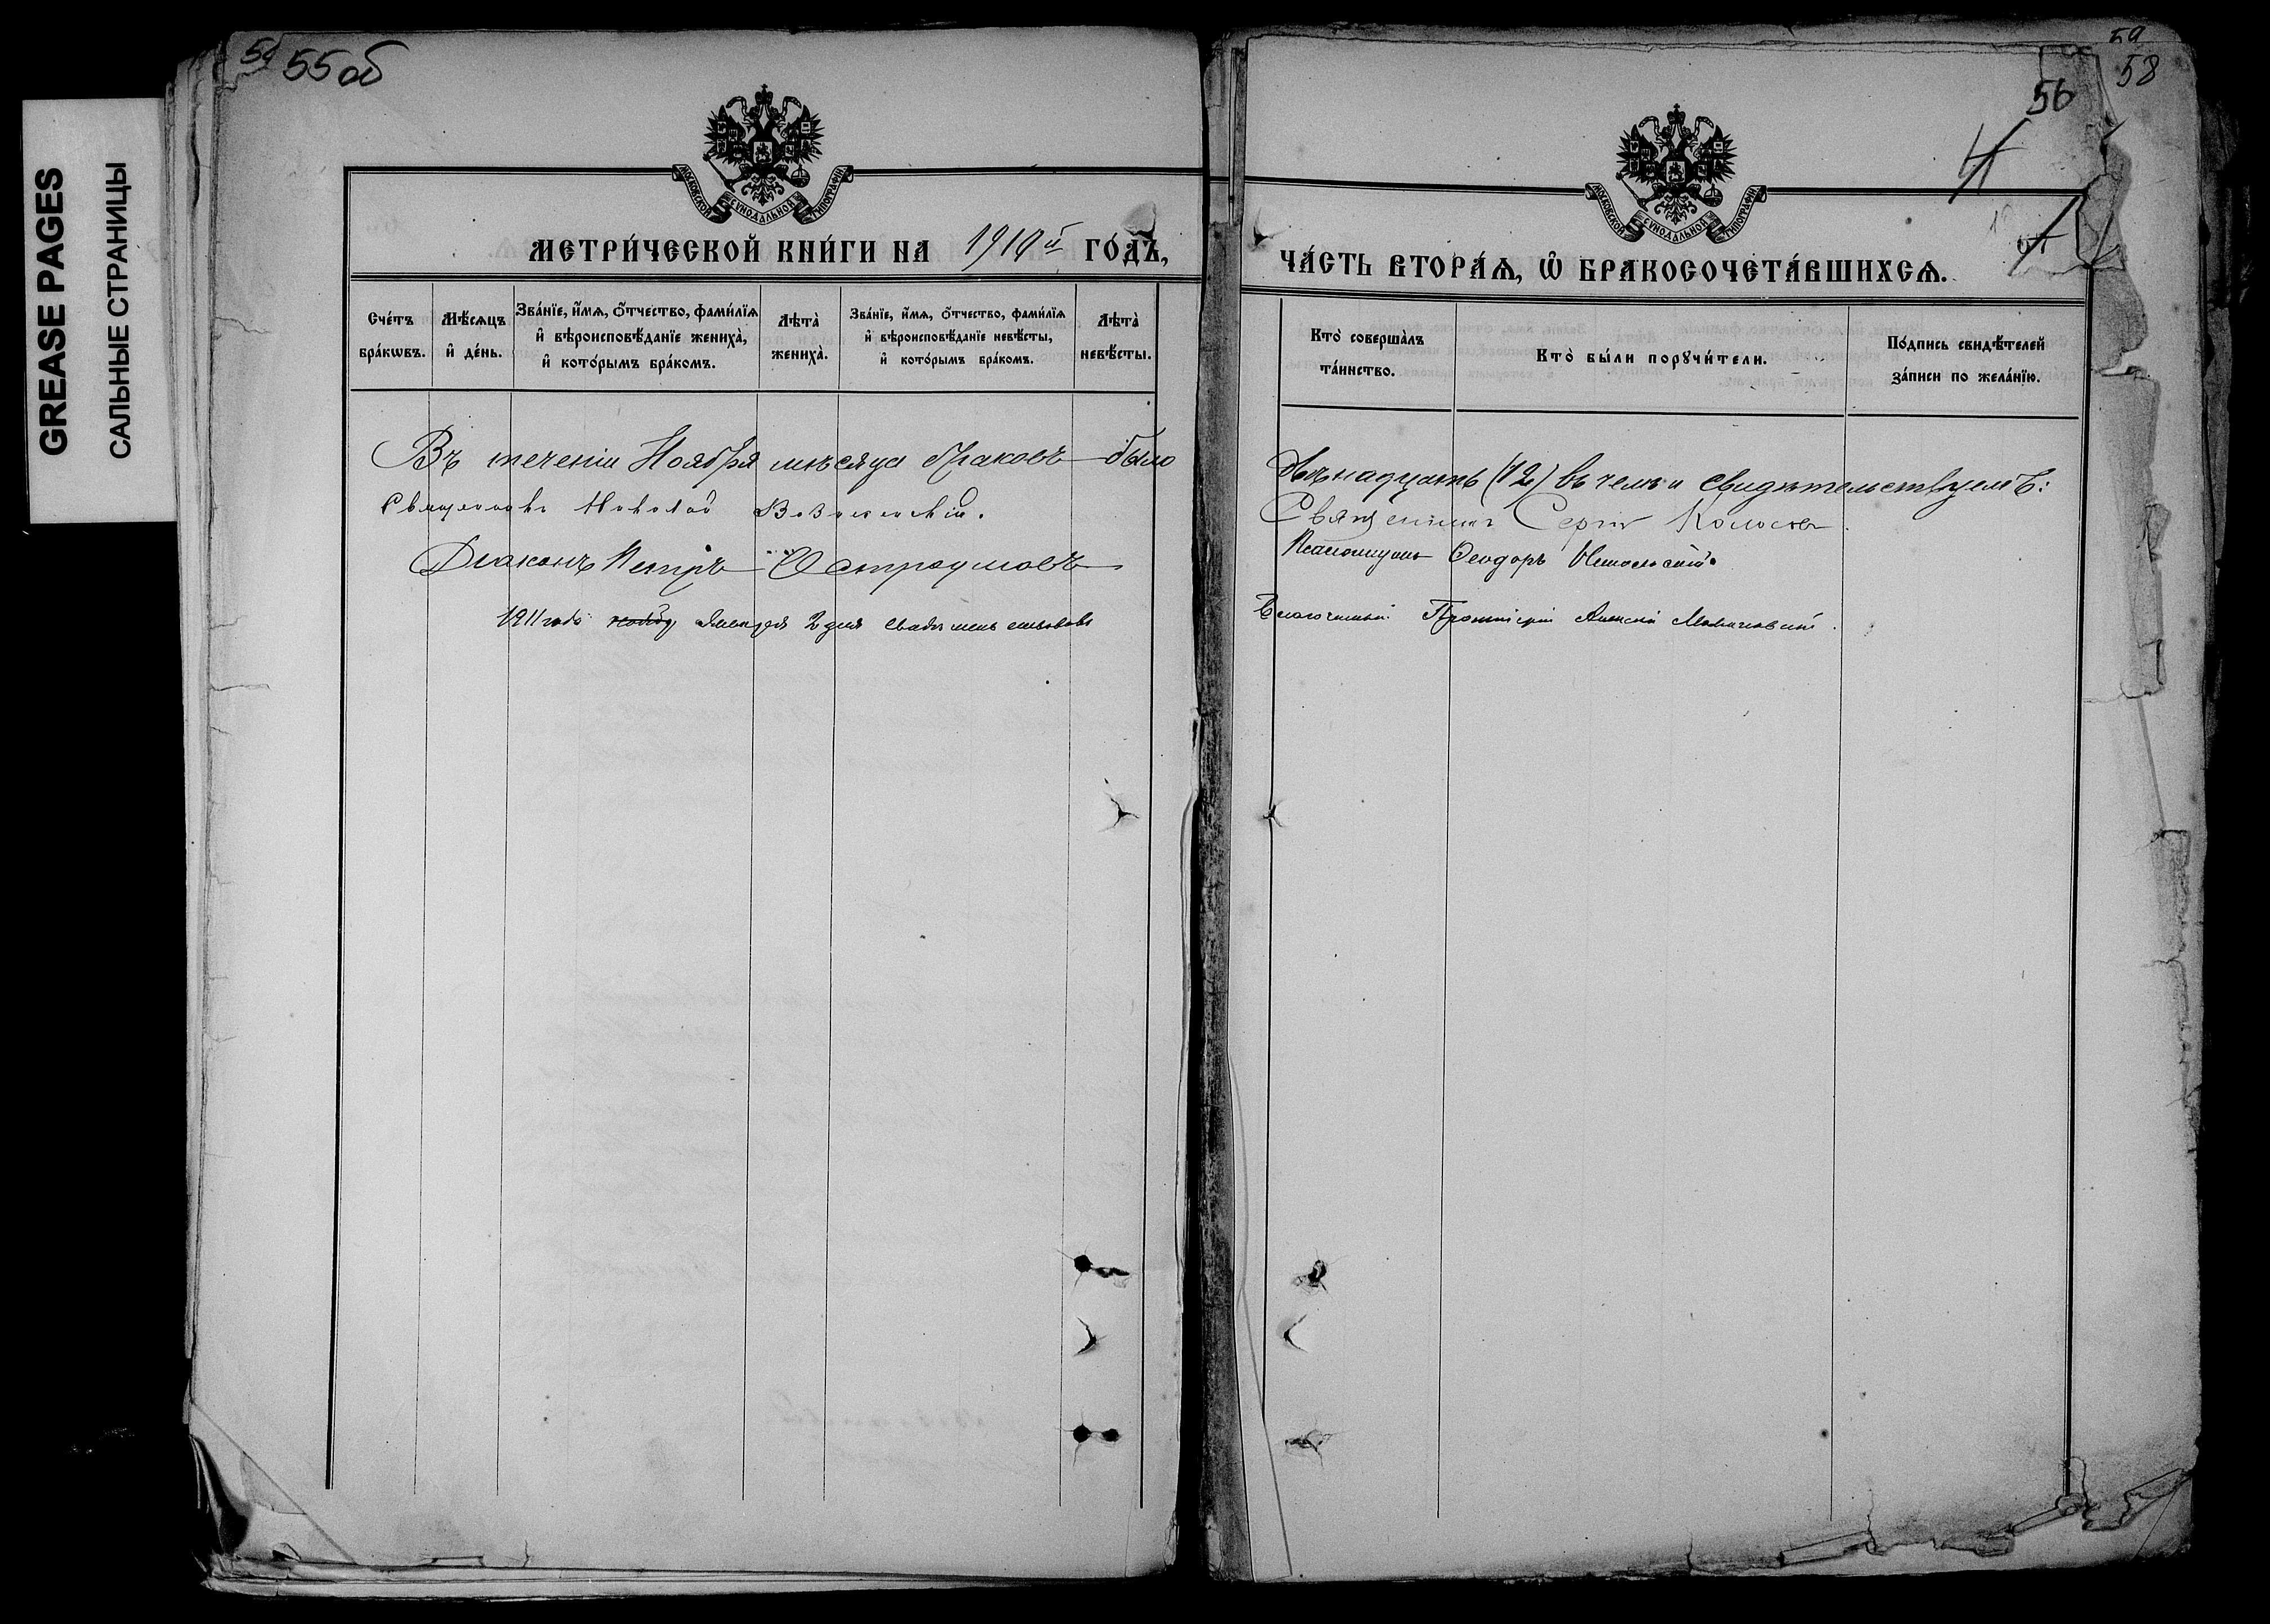 GREASE PAGES
САЛЬНЫЕ СТРАНИЦЫ
55 об
МОСКОВСКОЙ СѴНОДАЛЬНОЙ ТИПОГРАФІИ
МЕТРИ́ЧЕСКОЙ КНИ́ГИ НА 1910 й ГО́ДЪ,
Сче́тъ бра́кѡвъ.
Мѣ́сяцъ и҆ де́нь.
Зва́нїе, и҆́мѧ, ѻ҆́тчество, фами́лїѧ и҆ вѣроисповѣ́данїе жениха̀, и҆ кото́рымъ бра́комъ.
Лѣта̀ жениха̀.
Зва́нїе, и҆́мѧ, ѻ҆́тчество, фами́лїѧ и҆ вѣроисповѣ́данїе невѣ́сты, и҆ кото́рымъ бра́комъ.
Лѣта̀ невѣ́сты.
Въ теченіи Ноября мѣсяца браковъ было
Священникъ Николай
Діаконъ Петръ Остроумовъ
1911 года Января 2 дня свидѣтельствовалъ
59
58
56
МОСКОВСКОЙ СѴНОДАЛЬНОЙ ТИПОГРАФІИ
ЧА́СТЬ ВТОРА́Ѧ, Ѽ БРАКОСОЧЕТА́ВШИХСѦ.
Кто̀ соверша́лъ та́инство.
Кто̀ бы́ли порꙋчи́тели.
По́дпись свидѣ́телей за́писи по жела́нїю.
двѣнадцать (12) въ чемъ и свидѣтельствуемъ:
Священникъ Сергій Колосовъ
Псаломщикъ Ѳеодоръ
Благочинный Протоіерей Алексій